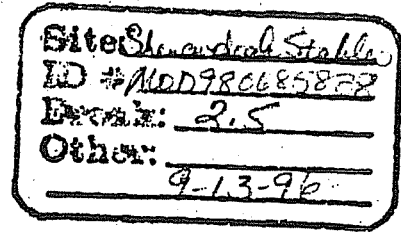 Site: Shenandoah Stables
ID # MOD980685838
Break: 2.5
Other:
9-13-96